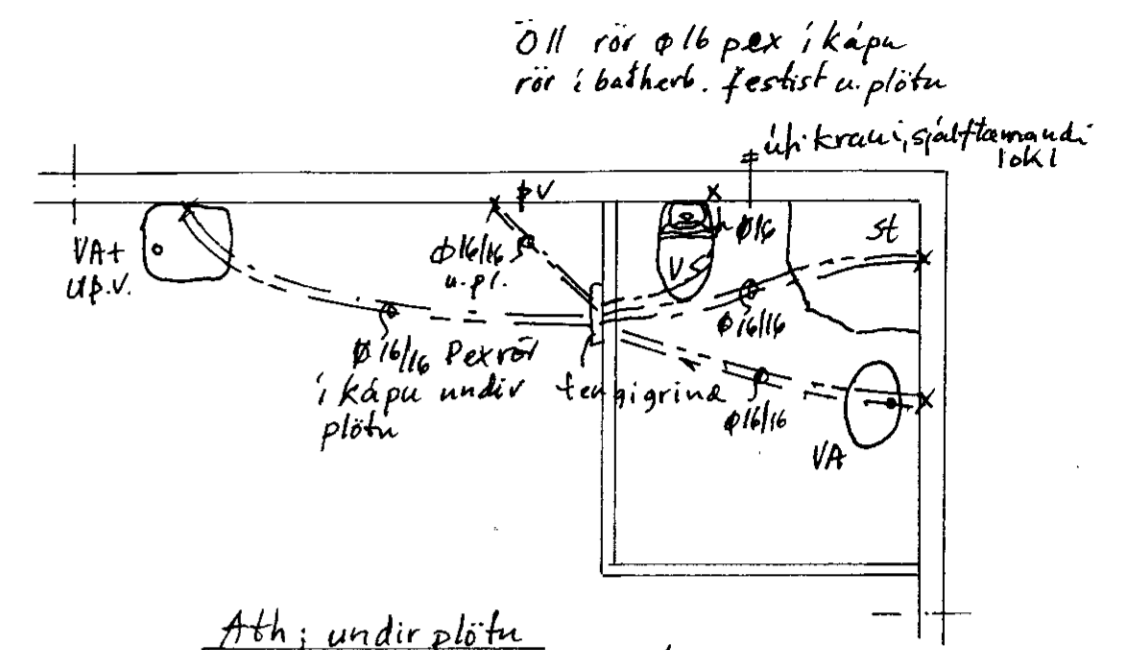 Öll rör ø16 pex í kápu
rör í baðherb. festist u. plötu
úti krani, sjálftæmandi
loki
þV
VA+
Uþ.V.
ø16/16
u.pl.
VS
ø16
st
ø16/16
ø16/16 Pexrör
í kápu undir
plötu
tengigrind
ø16/16
VA
Ath; undir plötu